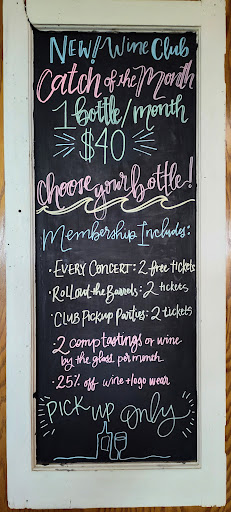 NEW! Wine Club
Catch of the Month
1 bottle/month
$40
Choose your bottle!
Membership Includes:
• EVERY CONCERT: 2 free tickets
• ROLL out the Barrels: 2 tickets
• CLUB PICKUP PARTIES: 2 tickets
• 2 comp tastings or wine
by the glass per month
• 25% off wine + logo wear
PICK UP Only